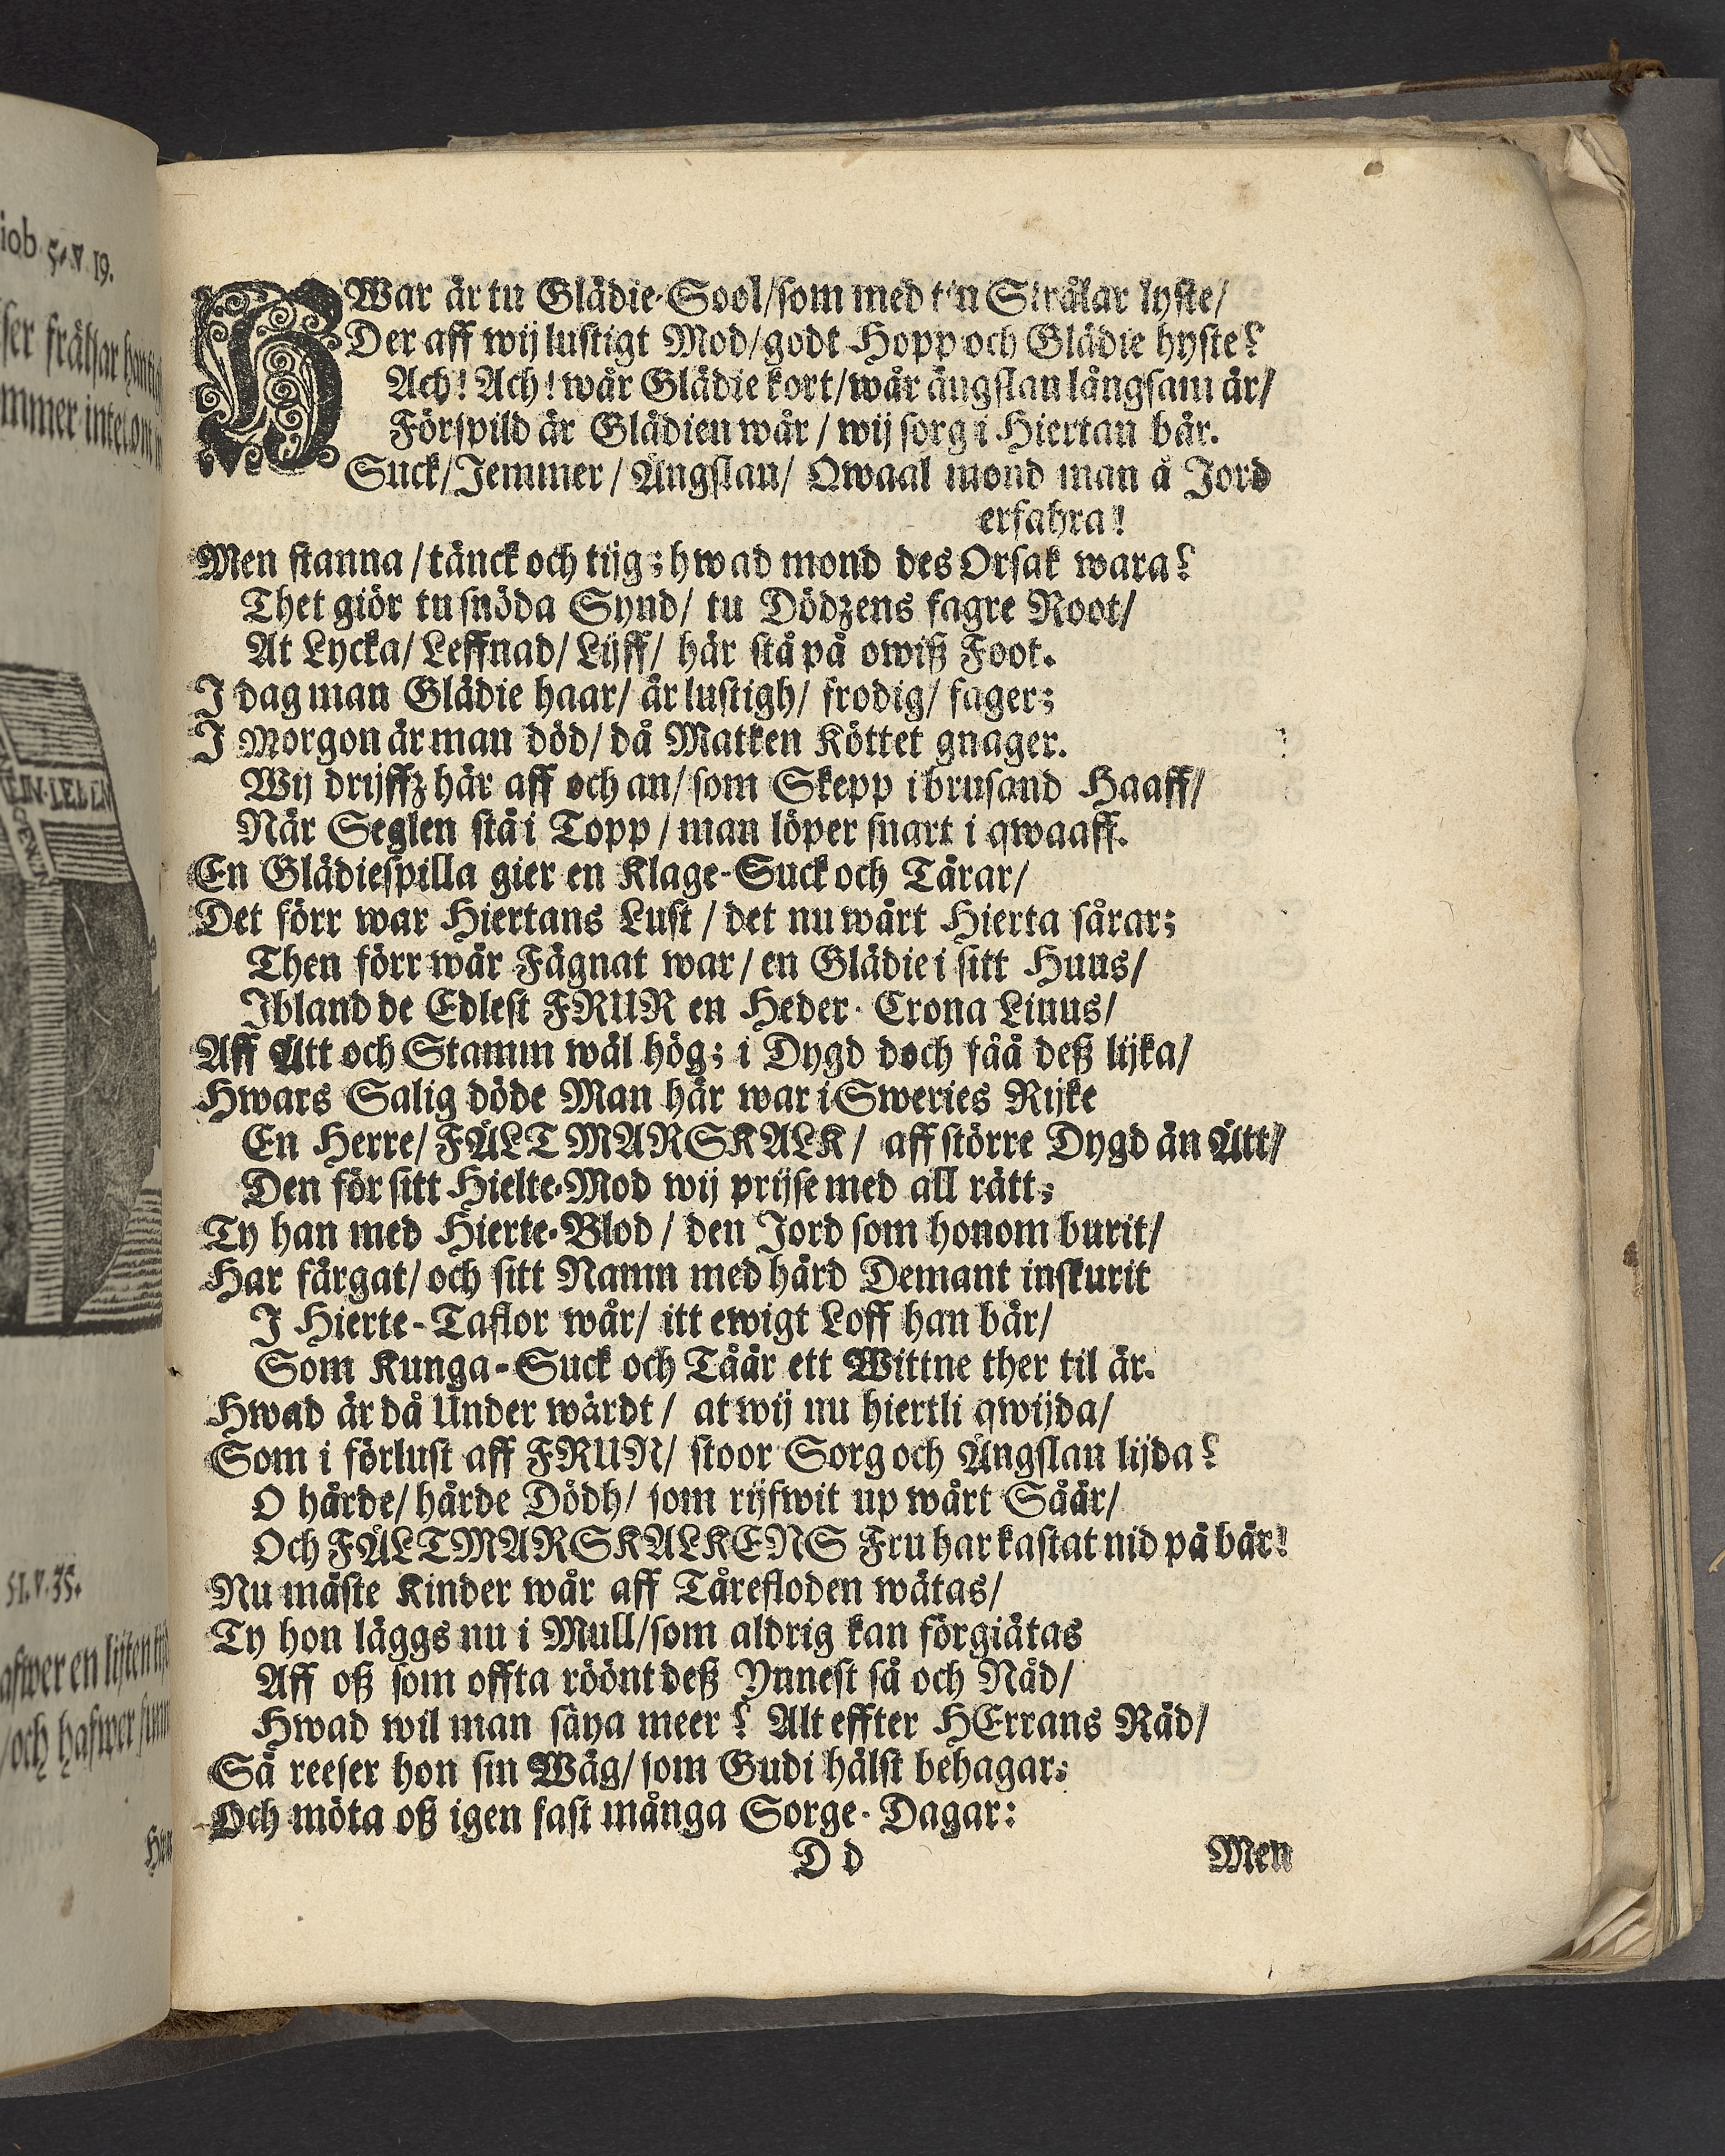 iob 5. v 19.
ser frälsar han tig
mmer intet om
EIN·LEBEN
51. v. 35.
afwer en lijten tijd
/och hafwer
HWar är tu Glädie-Sool/som med t'n Strålar lyste/
Der aff wij lustigt Mod/godt Hopp och Glädie hyste?
Ach! Ach! wår Glädie kort/wår ängslan långsam är/
Förspild är Glädien wår/ wij sorg i Hiertan bär.
Suck/Jemmer/ Ängslan/ Qwaal mond man å Jord
erfahra!
Men stanna/tänck och tijg; hwad mond des Orsak wara?
Thet giör tu snöda Synd/ tu Dödzens fagre Root/
At Lycka/ Leffnad/ Lijff/ här stå på owiß Foot.
I dag man Glädie haar/ är lustigh/ frodig/ fager;
I Morgon är man död/ då Matken Köttet gnager.
Wij drijffz här aff och an/ som Skepp i brusand Haaff/
När Seglen stå i Topp/ man löper snart i qwaaff.
En Glädiespilla gier en Klage-Suck och Tårar/
Det förr war Hiertans Lust/ det nu wårt Hierta sårar;
Then förr wår Fägnat war/ en Glädie i sitt Huus/
Ibland de Edlest FRUR en Heder-Crona Liuus/
Aff Ätt och Stamm wäl hög; i Dygd doch fåå deß lijka/
Hwars Salig döde Man här war i Sweries Rijke
En Herre/ FÄLTMARSKALK/ aff större Dygd än Ätt/
Den för sitt Hielte-Mod wij prijse med all rätt;
Ty han med Hierte-Blod/ den Jord som honom burit/
Har färgat/ och sitt Namn med hård Demant inskurit
I Hierte-Taflor wår/ itt ewigt Loff han bär/
Som Kunga-Suck och Tåår ett Wittne ther til är.
Hwad är då Under wärdt/ at wij nu hiertli qwijda/
Som i förlust aff FRUN/ stoor Sorg och Ängslan lijda?
O hårde/ hårde Dödh/ som rijfwit up wårt Såår/
Och FÄLTMARSKALKENS Fru har kastat nid på bår!
Nu måste Kinder wår aff Tårefloden wätas/
Ty hon läggs nu i Mull/som aldrig kan förgiätas
Aff oß som offta röönt deß Ynnest så och Nåd/
Hwad wil man säya meer? Alt effter HErrans Råd/
Så reeser hon sin Wäg/ som Gudi hälst behagar;
Och möta oß igen fast många Sorge-Dagar:
D d
Men